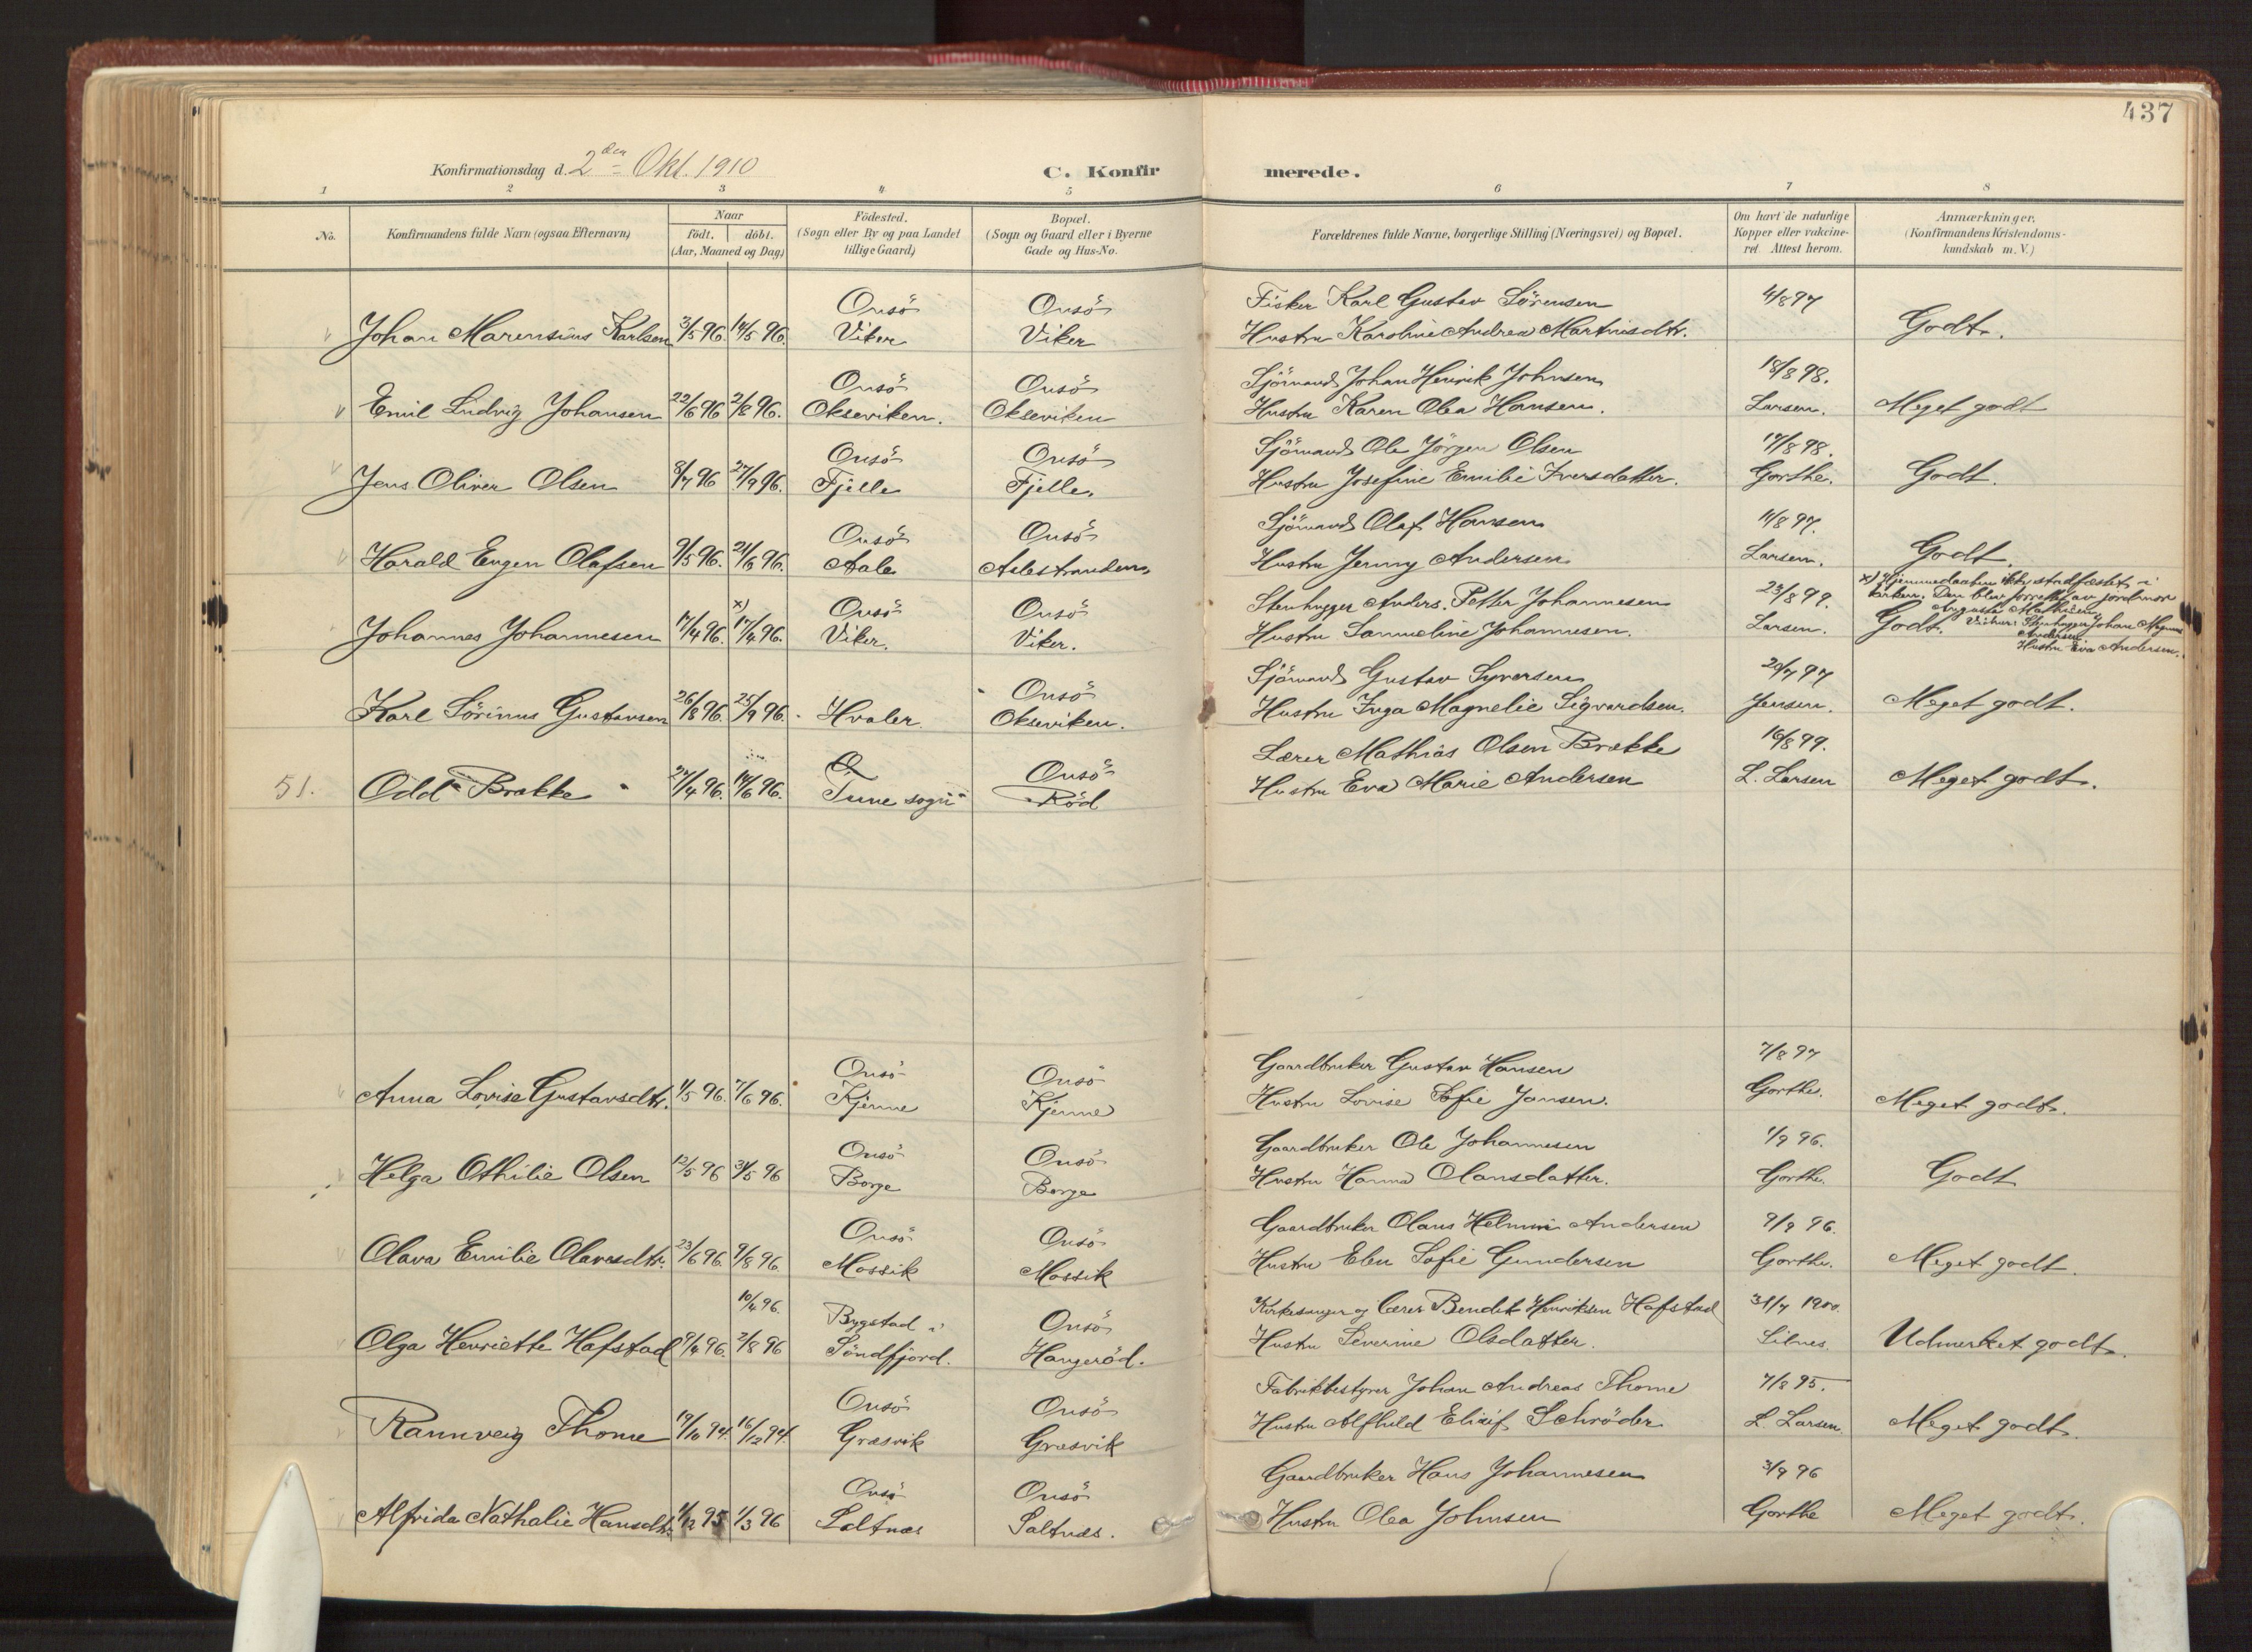 437
Konfirmationsdag d. 2den Okt. 1910
C. Konfirmerede.
1 2 3 4 5 6 7 8
No.
Konfirmandens fulde Navn (ogsaa Efternavn)
Naar
födt. döbt.
(Aar, Maaned og Dag)
Födested.
(Sogn eller By og paa Landet
tillige Gaard)
Bopæl.
(Sogn og Gaard eller i Byerne
Gade og Hus-No.
Forældrenes fulde Navne, borgerlige Stilling (Næringsvei) og Bopæl.
Om havt de naturlige
Kopper eller vakcine-
ret. Attest herom.
Anmærkninger,
(Konfirmandens Kristendoms-
kundskab m. V.)
Onsö Onsö Fisker Karl Gustav Sörensen 4/8 97
Johan Marensius Karlsen 3/5 96. 14/5 96. Viker Viker Hustru Karoline Andrea Martinisdtr. Godt.
Onsö Onsö Sjömand Johan Henrik Johnsen 18/8 98.
Emil Ludvig Johansen 22/6 96 2/8 96. Okseviken. Okseviken Hustru Karen Olea Hansen. Larsen. Meget godt
Onsö Onsö Sjömand Ole Jörgen Olsen 17/8 98.
Jens Oliver Olsen 8/7 96 27/9 96. Fjelle Fjelle. Hustru Josefine Emilie Iversdatter. Gorthe. Godt.
Onsö Onsö Sjömand Olaf Hansen 11/8 97.
Harald Eugen Olafsen 9/5 96. 21/6 96. Aale Aalestranden. Hustru Jenny Andersen Larsen. Godt.
x) Hjemmedaaben ikke stadfæstet i
kirken. Den blev forrettet av jordmor
x) Onsö Onsö Stenhugger Anders Petter Johannesen 23/8 99.
Augusta Mathisen
Johannes Johannesen 17/4 96. 17/4 96. Viker. Viker. Hustru Samueline Johannesen. Larsen. Godt. Vidner: Stenhugger Johan Magnus
Andersen
Hustru Eva Andersen.
Onsö Sjömand Gustav Syversen 20/7 97
Karl Sörinus Gustavsen 26/8 96. 25/9 96. Hvaler Okseviken. Hustru Inga Magnelie Sigvardsen. Jensen. Meget godt.
Onsö Lærer Mathias Olsen Brække 16/8 99.
51. Odd Brække 24/4 96. 14/6 96. Tune sogn Röd Hustru Eva Marie Andersen L. Larsen Meget godt.
Onsö Onsö Gaardbruker Gustav Hansen 7/8 97
Anna Lovise Gustavsdtr. 1/5 96. 7/6 96. Kjenne Kjenne Hustru Lovise Sofie Jansen. Gorthe. Meget godt.
Onsö Onsö Gaardbruker Ole Johannesen 1/9 96.
Helga Othilie Olsen 12/5 96 31/5 96 Borge Borge Hustru Hanna Olansdatter. Gorthe. Godt
Onsö Onsö Gaardbruker Olaus Helmin Andersen 9/9 96.
Olava Emilie Olavesdtr. 23/6 96. 9/8 96 Mossik Mossik Hustru Elen Sofie Gundersen Gorthe. Meget godt.
10/4 96. Bygstad i Onsö Kirkesanger og lærer Bendik Henriksen Hafstad 31/7 1900.
Olga Henriette Hafstad 9/4 96. 2/8 96 Söndfjord. Haugeröd. Hustru Severine Olsdatter. Silnes. Udmerket godt.
Onsö Onsö Fabrikbestyrer Johan Andreas Thome 7/8 95.
Rannveig Thome 19/10 94. 16/12 94. Græsvik Græsvik Hustru Alfhild Schröder L. Larsen. Meget godt.
Onsö Onsö Gaardbruker Hans Johannesen 3/9 96
Alfrida Nathalie Hansdtr. 1/12 95 1/3 96 Saltnæs Saltnæs. Hustru Olea Johnsen Gorthe Meget godt.